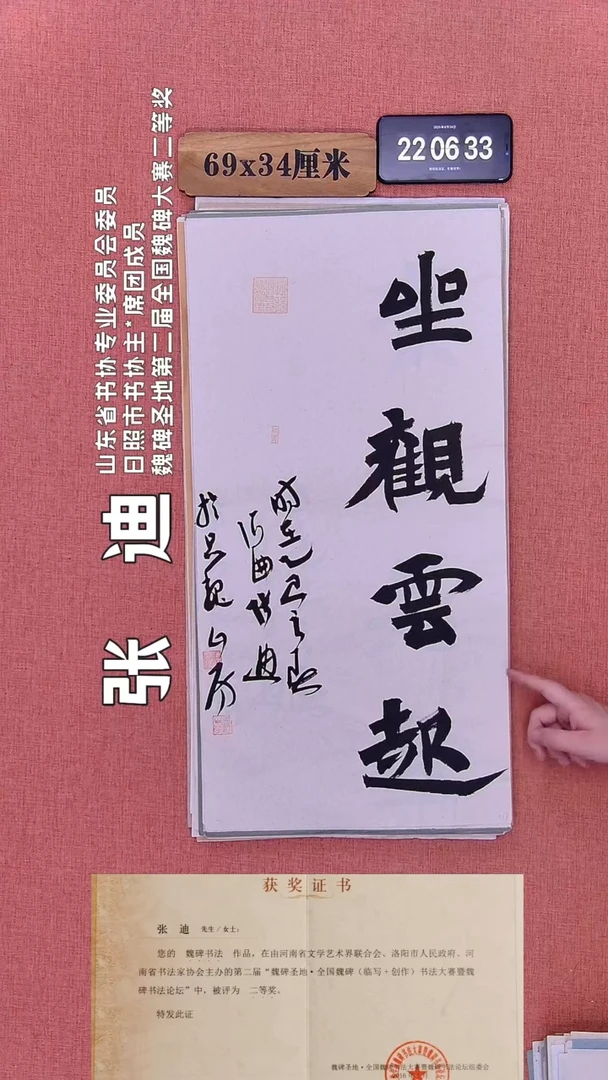 69x34厘米
22 06 33
山东省书协专业委员会委员
日照市书协主*席团成员
魏碑圣地第二届全国魏碑大赛二等奖
张 迪
坐觀雲起
时在乙巳之春
获奖证书
张 迪 先生/女士：
您的 魏碑书法 作品，在由河南省文学艺术界联合会、洛阳市人民政府、河
南省书法家协会主办的第二届“魏碑圣地·全国魏碑（临写+创作）书法大赛暨魏
碑书法论坛”中，被评为 二等奖。
特发此证
魏碑圣地·全国魏碑书法大赛暨魏碑书法论坛组委会